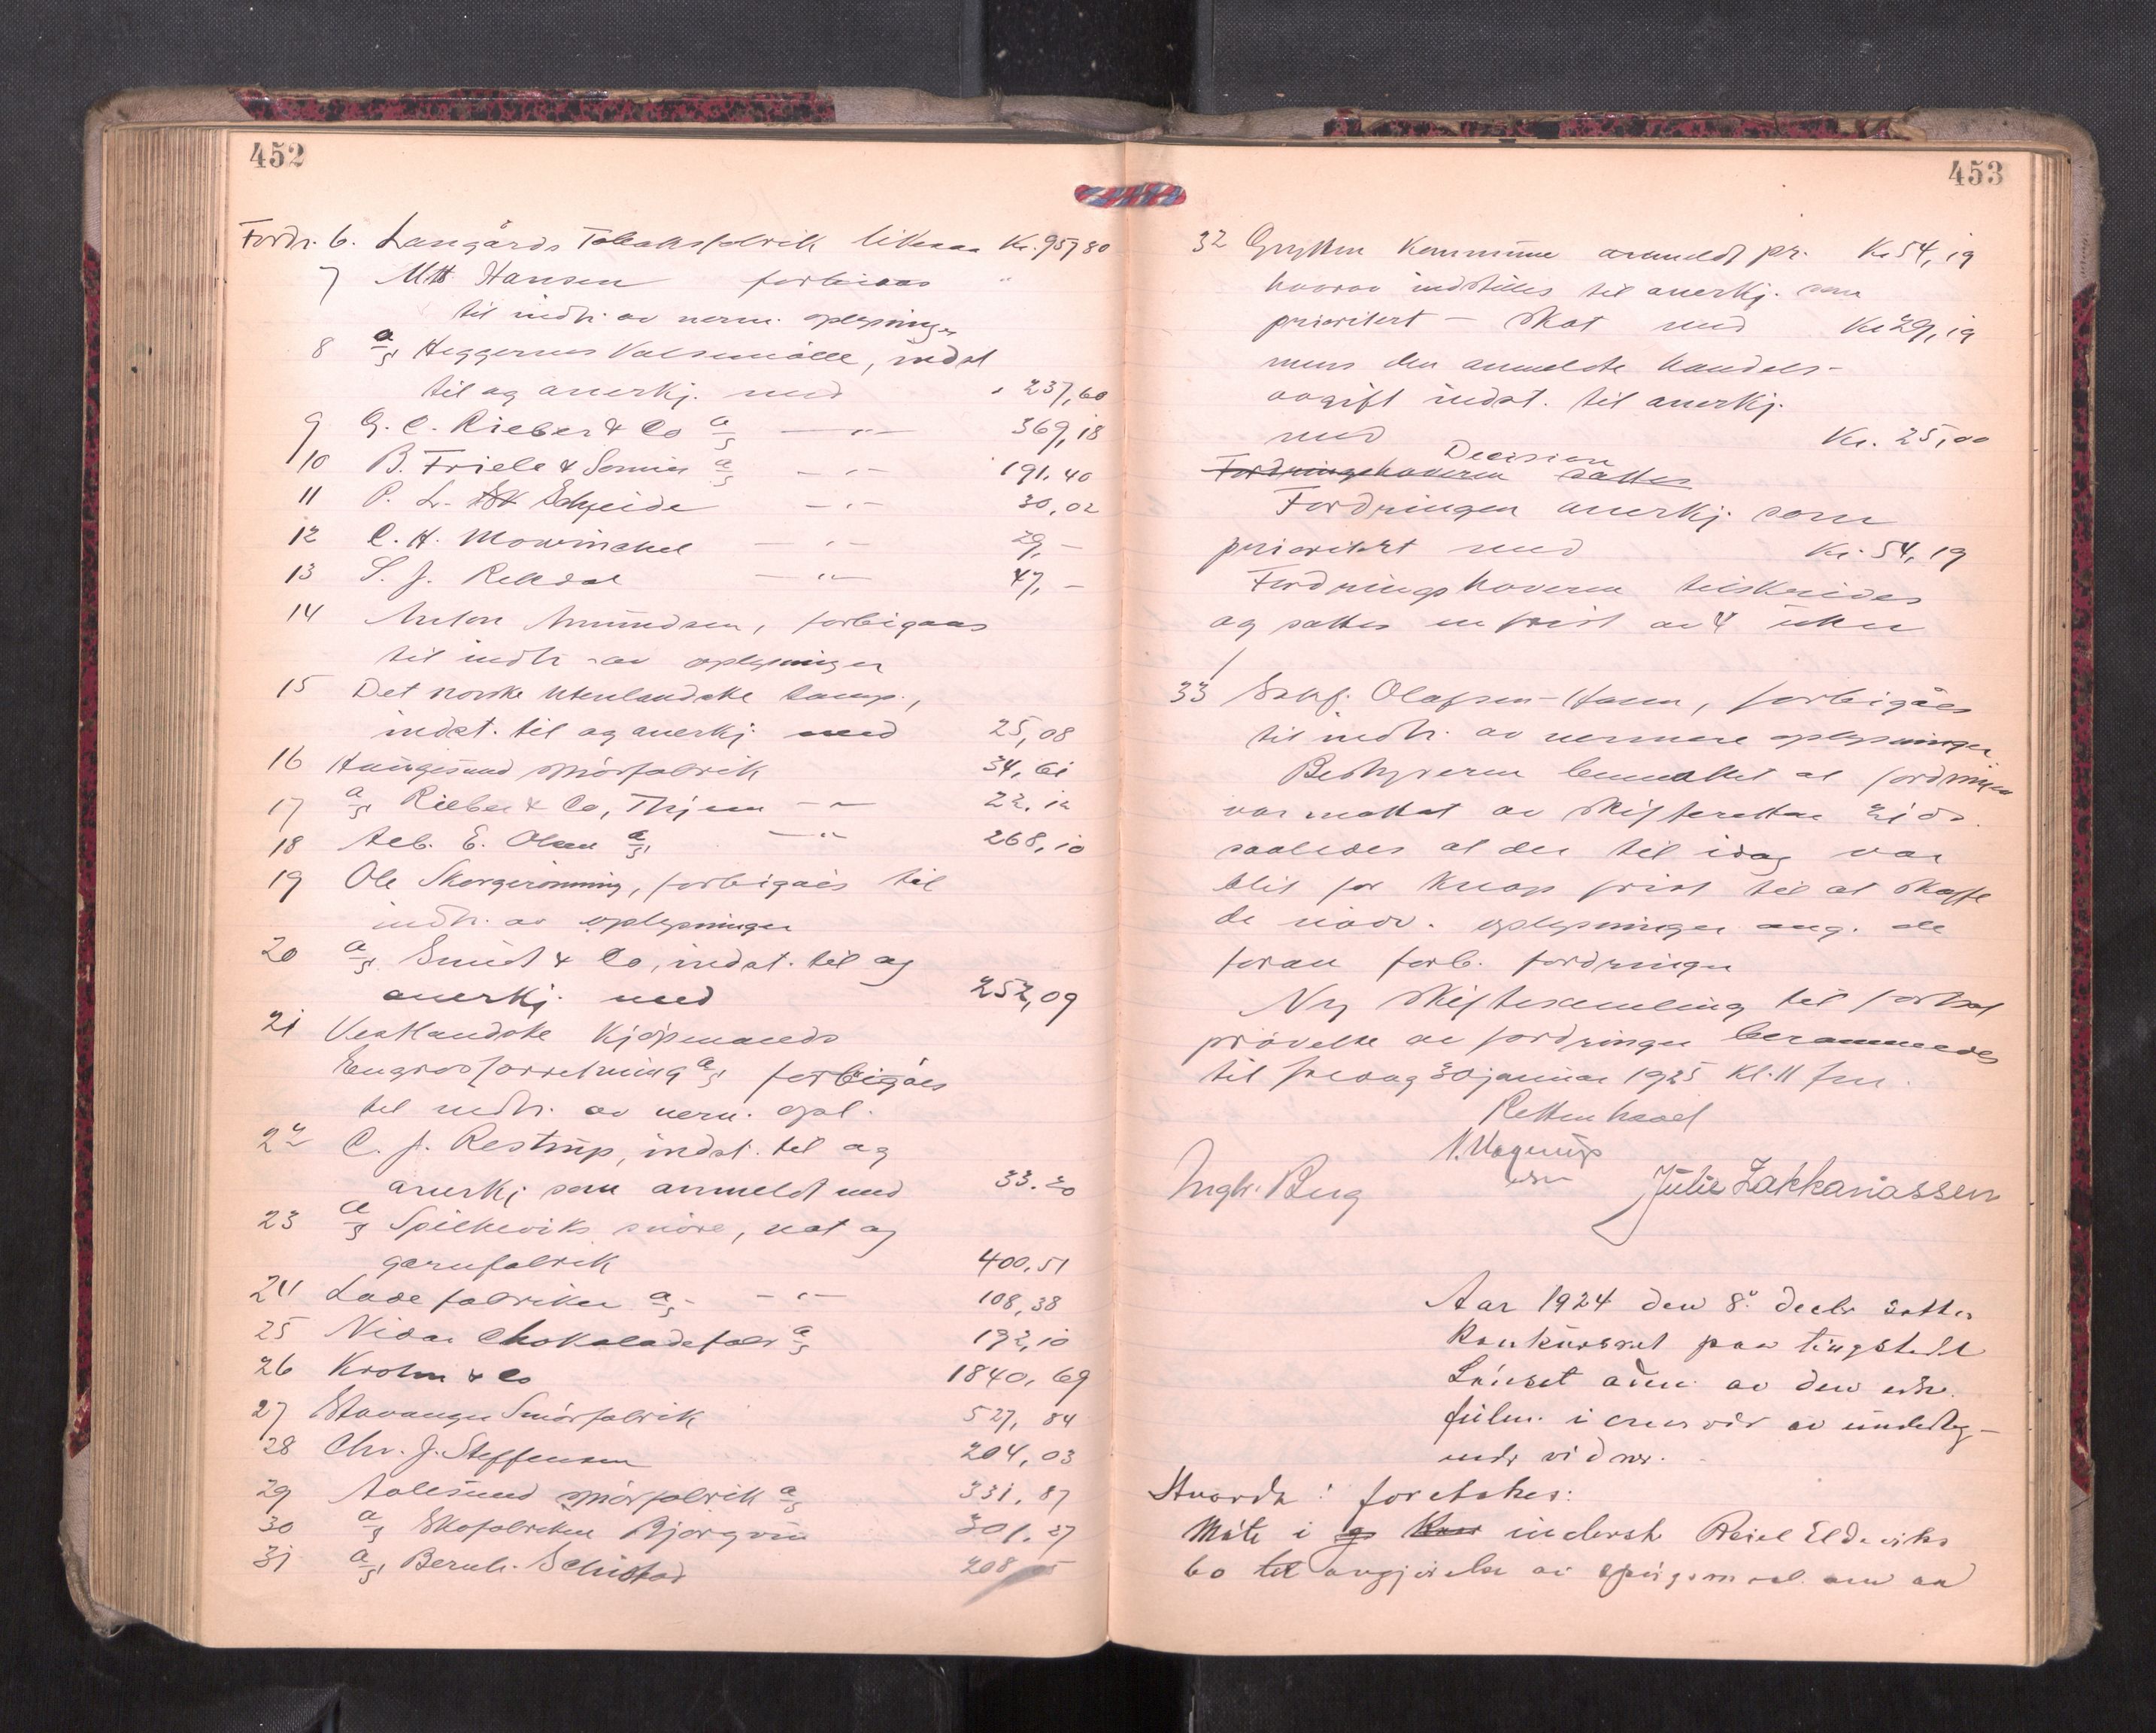 452
Fordr. 6. Langårds Tobaksfabrik likesaa Kr. 957 80
7 Mtt. Hansen forbigaas "
til indh. av nerm. oplysninger
8 a/s Heggernes Valsemølle, indst
til og anerkj. med " 237,60
9 G. C. Rieber & Co a/s — " — 369,18
10 B. Friele & Sønner a/s — " — 191.40
11 P. L. Schjeide — " — 30,02
12 C. H. Mowinckel — " — 29,—
13 S. J. Rekdal — " — 47,—
14 Anton Amundsen, forbigaas
til indh. av oplysninger
15 Det norske Utenlandske komp.,
indst. til og anerkj. med 25,08
16 Haugesund smörfabrik 34,61
17 a/s Rieber & Co, Thjem — " — 22.12
18 Aeb. E. Olsen a/s — " — 268,10
19 Ole Skorgerönning, forbigåes til
indh. av oplysninger
20 a/s Smith & Co, indst. til og
anerkj. med 252,09
21 Vestlandske Kjøpmænds
Engrosforretning a/s forbigåes
til indh. av nerm. opl.
22 C. J. Restrup, indst. til og
anerkj som anmeldt med 33.20
23 a/s Spilkeviks snöre, not og
garnfabrik 400.51
24 Lade fabriker a/s — " — 108,38
25 Nidar Chokoladefabr a/s 192,10
26 Krohn & Co 1840,69
27 Stavanger Smörfabrik 527,84
28 Chr. J. Steffensen 204,03
29 Aalesund smörfabrik a/s 331.87
30 a/s Skofabriken Bjørgvin 301.27
31 a/s Bernh. Schistad 208
453
32 Grytten Kommune anmeldt pr. Kr 54,19
hvorav indstilles til anerkj. som
prioritert — Skat med Kr 29,19
mens den anmeldte handels-
avgift indst. til anerkj.
med Kr. 25,00
Decision
Fordringshaveren sattes
Fordringen anerkj. som
prioritert med Kr. 54,19
Fordringshaveren tilskrives
og sattes en frist av 4 uker
33 Sakf. Olafsen-Holm, forbigåes
til indh. av nermere oplysninger
Bestyreren bemerket at fordringen
var mottat av skifteretten 21 ds.
saaledes at der til idag var
blit for knap frist til at skaffe
de nødv. oplysninger ang. de
foran forb. fordringer
Ny skiftesamling til fortsat
prövelse av fordringer berammedes
til fredag 30 januar 1925 kl. 11 fm.
Retten hævet
Ingh. Berg Julie Zakkariassen
Aar 1924 den 8de decbr sattes
konkursret paa tingstedet
adm. av den edsv.
fuldm. i nærvær av underteg-
nede vidner.
Hvorda: foretokes:
Møte i indersk Peiel Eldeviks
bo til avgjørelse av spørgsmaal om an